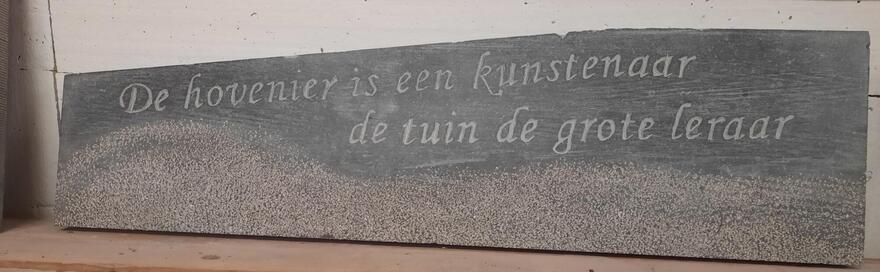 De hovenier is een kunstenaar
de tuin de grote leraar